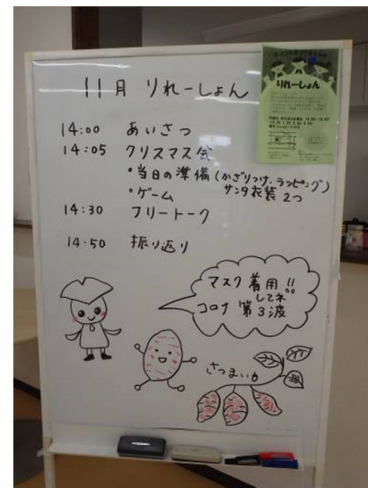 11月 りれーしょん
りれーしょん
14:00 あいさつ
14:05 クリスマス会
・当日の準備(かざりつけ、ラッピング)
サンタ衣装2つ
・ゲーム
14:30 フリートーク
14:50 振り返り
マスク着用!!
してネ
コロナ第3波
さつまいも